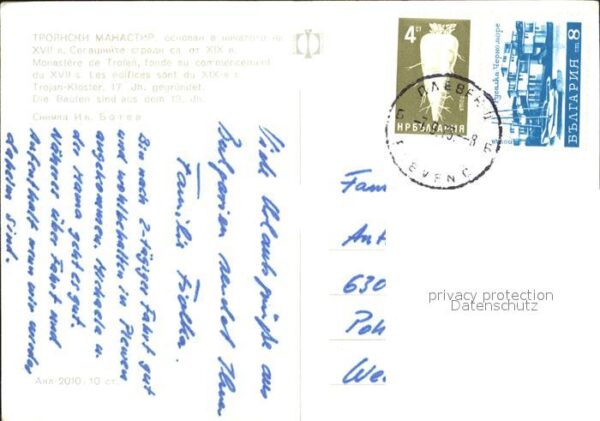 ТРОЯНСКИ МАНАСТИР, основан в началото на
XVII в. Сегашните сгради са от XIX в.
Monastère de Trojan, fondé au commencement
du XVII s. Les édifices sont du XIX-e s.
Trojan-Kloster, 17 Jh. gegründet.
Die Bauten sind aus dem 19. Jh.
Снимка Ив. Ботев
Viele Urlaubsgrüße aus
Bulgarien sendet Ihnen
Familie
Bin nach 2-tägiger Fahrt gut
und wohlbehalten in Plewen
angekommen. Michaela u.
der Mama geht es gut.
Näheres über Fahrt und
Aufenthalt wenn wir wieder
daheim sind.
Акл-2010; 10 ст.
4 ст
НР БЪЛГАРИЯ
БЪЛГАРИЯ ст 8
ПЛЕВЕН
Fam
Ant
630
Poh
We
privacy protection
Datenschutz